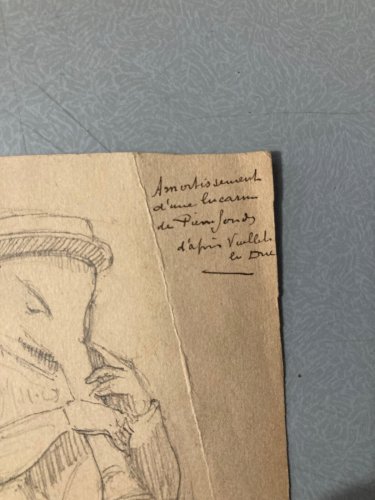 Amortissement
d'une lucarne
de Pierrefonds
d'après Viollet
le Duc